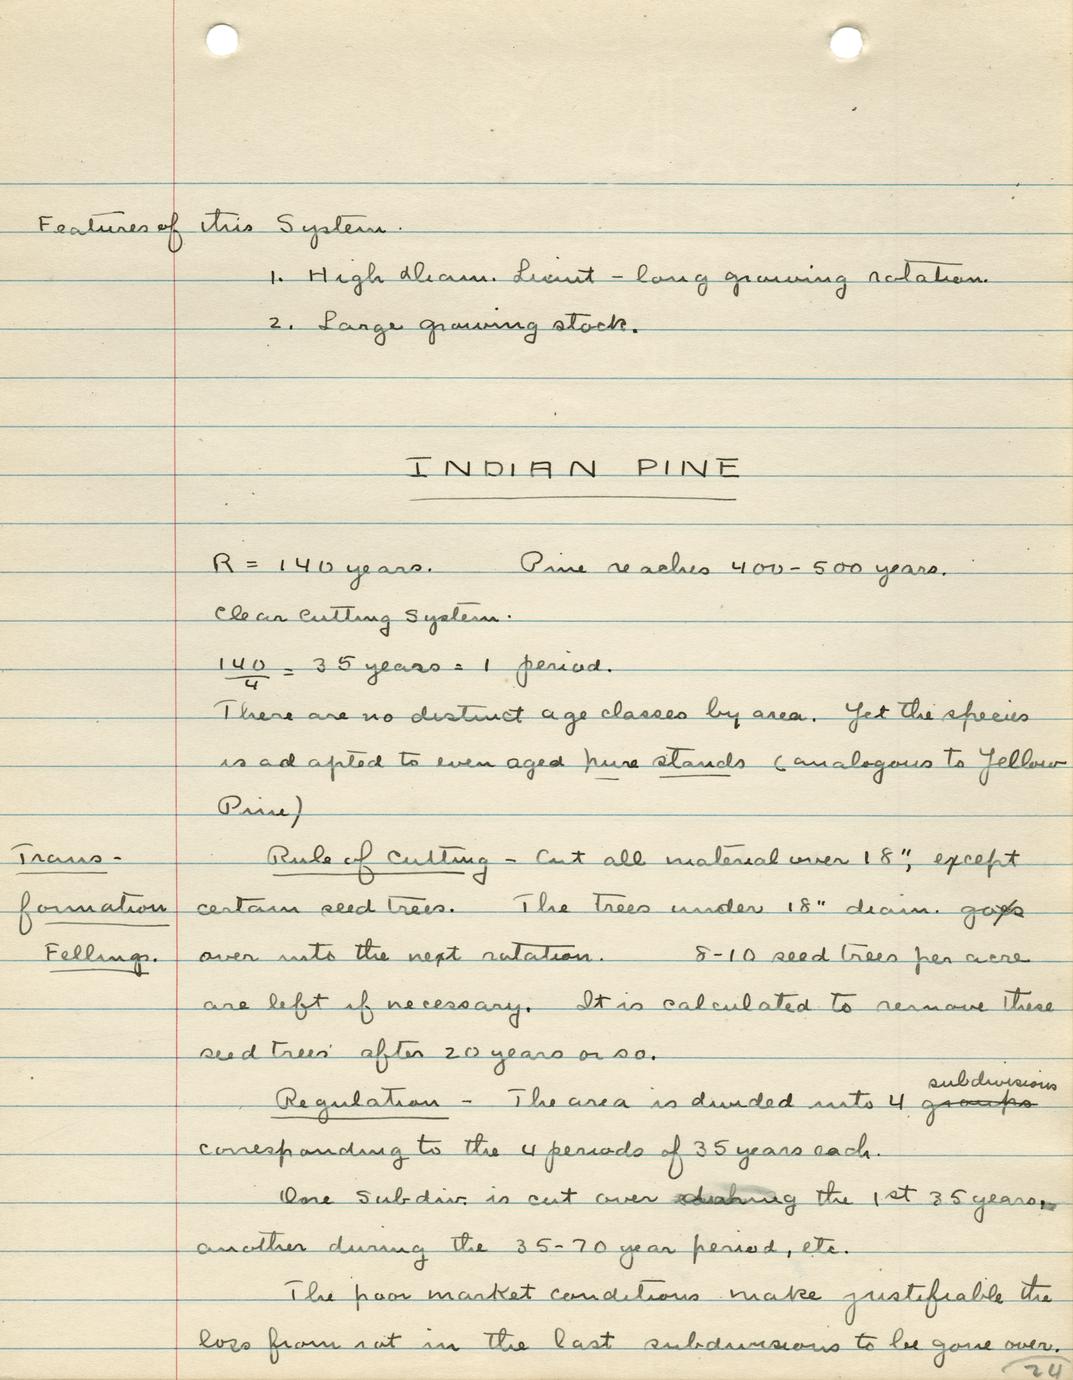 Features of this System.
1. High diam. Limit – long growing rotation.
2. Large growing stock.
INDIAN PINE
R = 140 years. Pine reaches 400–500 years.
Clear Cutting System.
140/4 = 35 years = 1 period.
There are no distinct age classes by area. Yet the species
is adapted to even aged pure stands (analogous to Yellow
Pine)
Trans- Rule of Cutting – Cut all material over 18", except
formation certain seed trees. The trees under 18" diam. go
Fellings. over into the next rotation. 8-10 seed trees per acre
are left if necessary. It is calculated to remove these
seed trees after 20 years or so.
subdivisions
Regulation – The area is divided into 4 groups
corresponding to the 4 periods of 35 years each.
One Subdiv. is cut over during the 1st 35 years,
another during the 35-70 year period, etc.
The poor market conditions make justifiable the
loss from rot in the last subdivisions to be gone over.
24